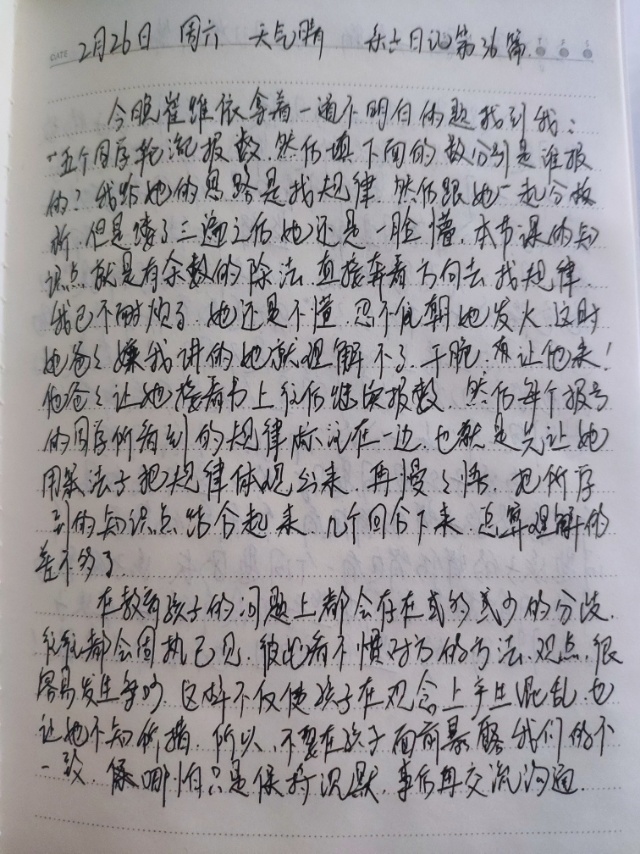 2月26日 周六 天气晴 亲子日记第36篇
今晚崔雅依拿着一道不明白的题找到我:
"五个同学轮流报数,然后填下面的数分别是谁报
的?我给她的思路是找规律,然后跟她一起分析
析,但是讲了三遍之后她还是一脸懵,本节课的知
识点就是有余数的除法,直接奔着方向去找规律,
我已不耐烦了,她还是不懂,忍不住朝她发火,这时
她爸爸嫌我讲的她就理解不了,干脆,让他来!
他爸爸让她接着书上往后继续报数,然后每个报号
的同学所看到的规律标记在一边,也就是先让她
用笨法子把规律体现出来,再慢慢悟,把所学
到的知识点结合起来,几个回合下来,总算理解的
差不多了
在教育孩子的问题上都会存在或多或少的分歧,
往往都会固执己见,彼此看不惯对方的方法、观点,很
容易发生争吵,这样不仅使孩子在观念上产生混乱,也
让她不知所措,所以,不要在孩子面前暴露我们的不
一致,哪怕只是保持沉默,事后再交流沟通.